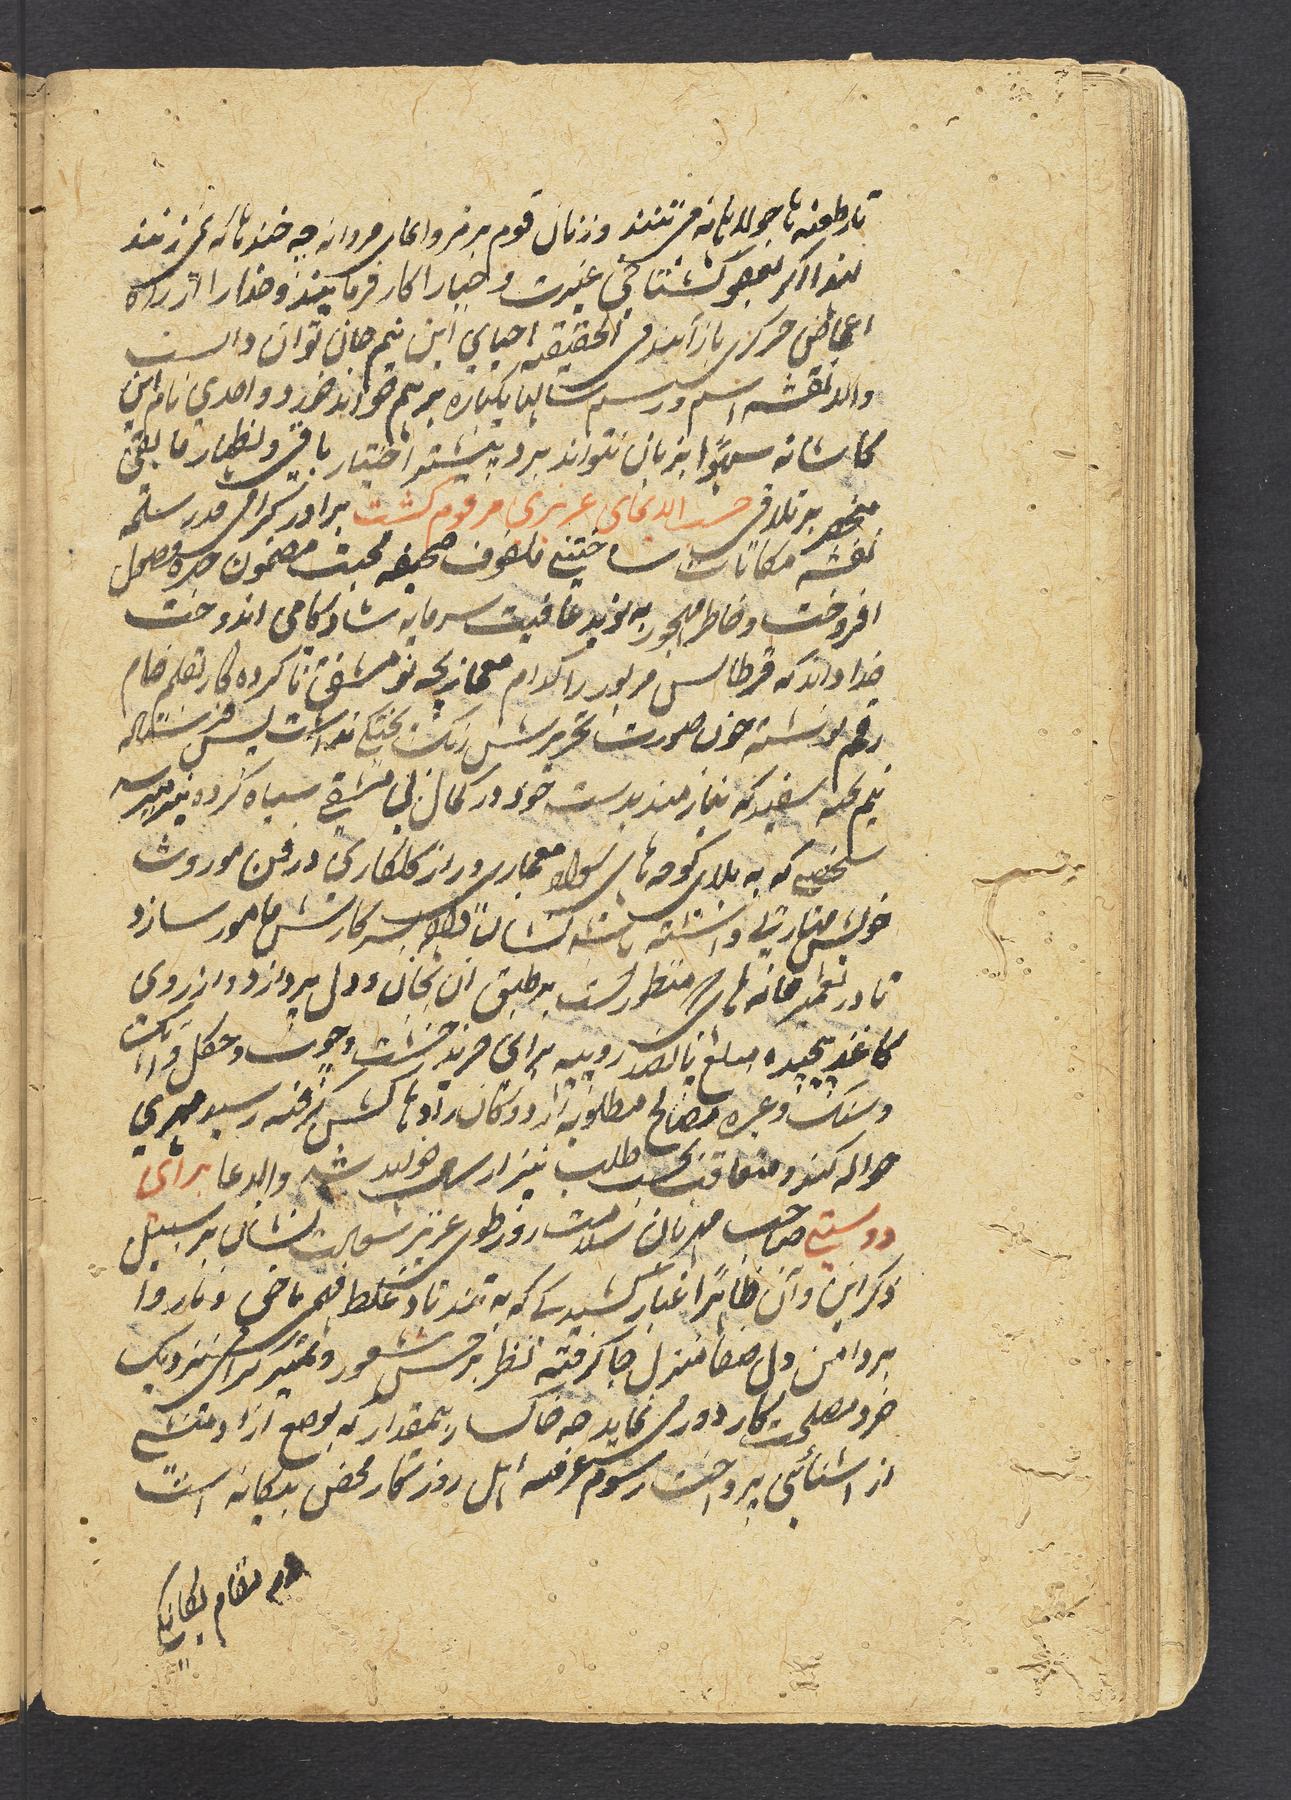 تار طعنه ها جولاهانه می تنند و زنان قوم بر فروانهای مردانه چه خندها که نمی زنند
لهذا اگر بعفو گستاخی غیرت و حیا را کار فرمایند و خدا را از راه
اغماض حرکی باز آیند فی الحقیقه احیای این نیم جان توان دانست
والد نقشه اسم و رسم یکباره برهم خواند خورد و احدی نام این
کاشانه سهوا بزبان نتواند برد بیشتر اختیار باقی و لطهار ما بقی
منحصر بر تلاقی حسب الایمای عزیزی مرقوم گشت برادر گرامی قدر سلمه
نقشه مکانات ساختنی ملفوف صحیفه محبت مضمون چهره وصول
افروخت و خاطر مهجور به نوید عافیت سرمایه شادکامی اندوخت
خدا داند که قرطاس مزبور را کدام معمار بچه نو مشق ناکرده کار بقلم خام
رقم نوشته چون صورت تحریرش رنگ پختگی نداشت پس فرستاده
نیم تخته سفید که نیازمند بدست خود در کمال بی مشقی سیاه کرده نیز میرسد
شخصی که به بلدی کوچه های سواد معماری و راز گلکاری در فن موروث
خویش مهارتی داشته باشد نشان والا سر کارش مامور سازد
تا در تعمیر خانه های منظور است بر طبق آن بجان و دل پردازد و از روی
کاغذ پیچیده مبلغ پانصد روپیه برای خرید خشت و چوب و گل و آهک
و سنگ و غیره مصالح مطلوبه از دوکان رادهاکشن گرفته رسید مهری
حواله کند و متعاقب بحسب طلب نیز ارسال خواهد شد والدعا برای
دوستی صاحب مهربان سلامت روز طوی عزیز سعادت نشان بر سبیل
ذکر این و آن ظاهرا غبار کشیدگی که به تندباد غلط فهمی ماضی و ناروا
بر دامن دل صفا منزل جا گرفته نظر بر حسن شعور و تمیز گرامی نزدیک
خرد مصلحت کار دوری نماید چه خاکسار بیمقدار که بوضع آزاد منشی
از آشنائی پرداخت رسوم عرفیه اهل روزگار محض بیگانه است
در مقام یگانگی